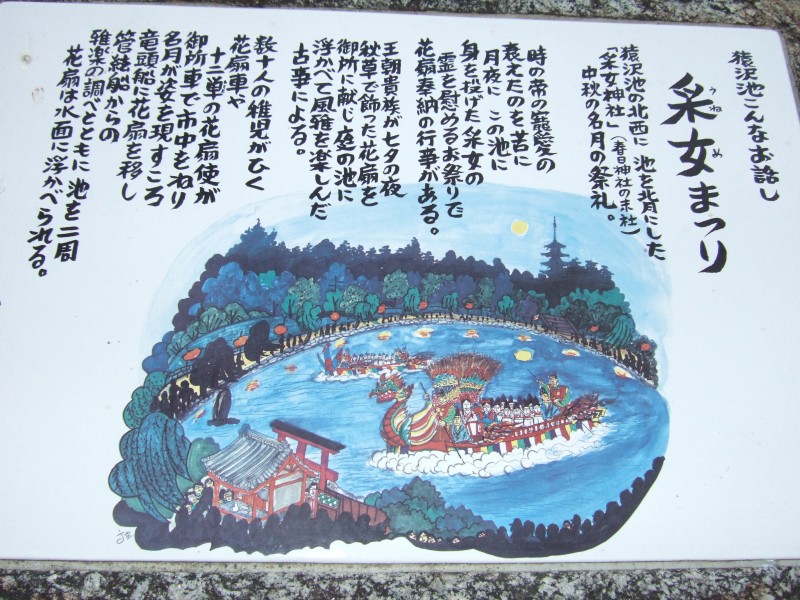 猿沢池こんなお話し
采女まつり
うねめ
猿沢池の北西に 池を背にした
「采女神社」(春日神社の末社)
中秋の名月の祭礼。
時の帝の寵愛の
衰えたのを苦に
月夜に この池に
身を投げた 采女の
霊を慰めるお祭りで
花扇奉納の行事がある。
王朝貴族が七夕の夜
秋草で飾った花扇を
御所に献じ 庭の池に
浮かべて風雅を楽しんだ
古事による。
数十人の稚児がひく
花扇車や
十二単の花扇使が
御所車で市中をねり
名月が姿を現すころ
竜頭船に花扇を移し
管絃船からの
雅楽の調べとともに 池を二周
花扇は水面に浮かべられる。